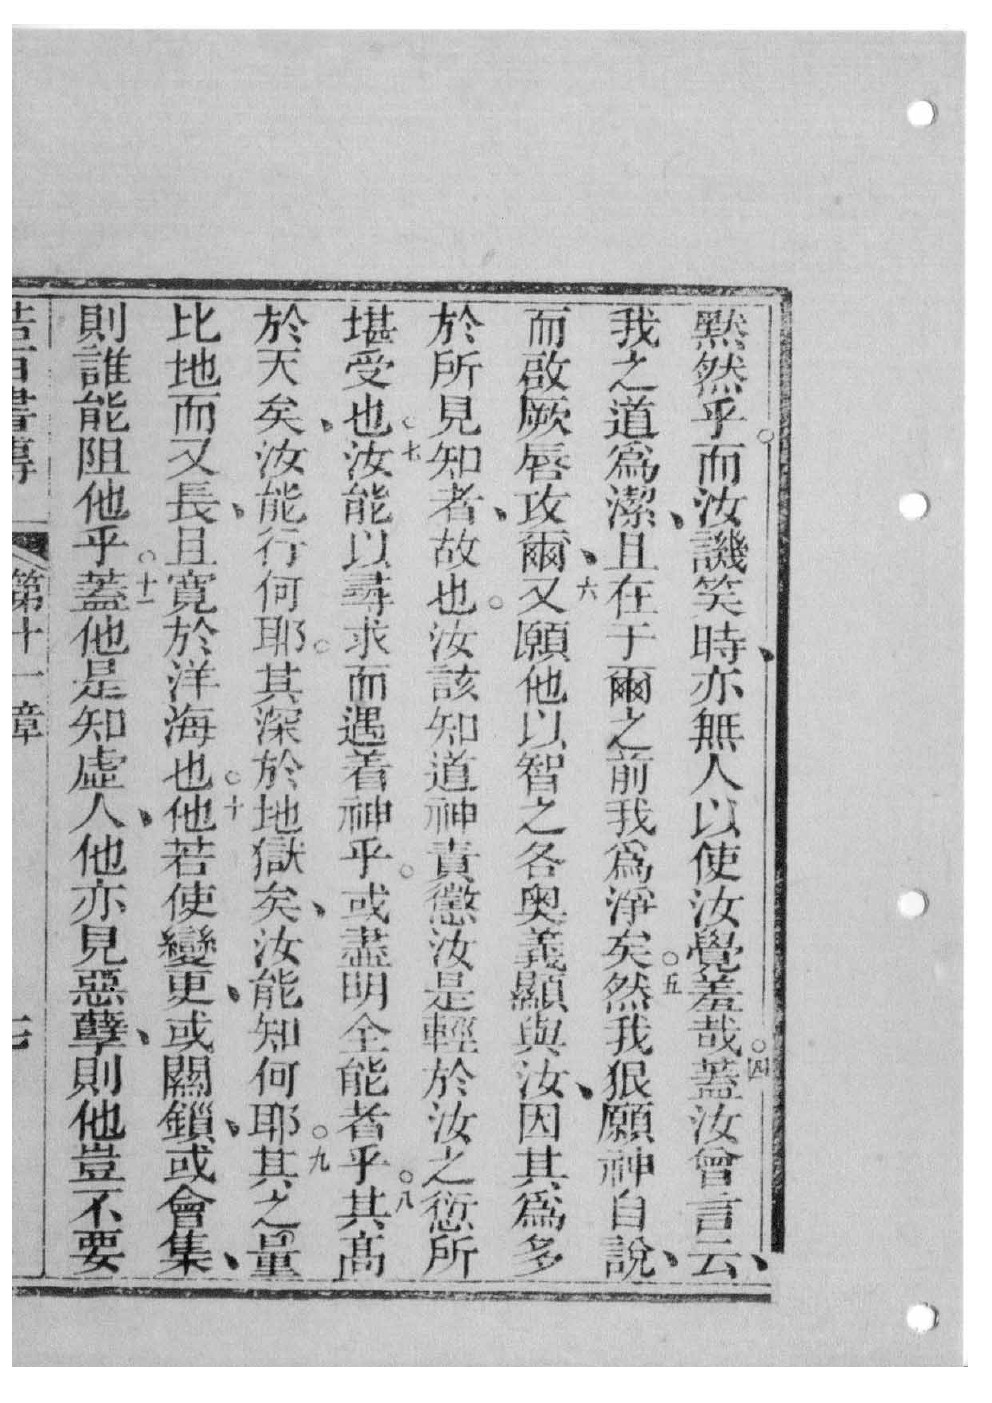 默然乎。而汝譏笑時、亦無人以使汝覺羞哉。四蓋汝曾言云、
我之道爲潔、且在于爾之前我爲淨矣。五然我狠願神自說、
而啟厥唇攻爾、六又願他以智之各奧義顯與汝、因其爲多
於所見知者、故也。汝該知道神責懲汝是輕於汝之愆所
堪受也。七汝能以尋求而遇着神乎。或盡明全能者乎。八其高
於天矣、汝能行何耶。其深於地獄矣、汝能知何耶。九其之量
比地而又長、且寬於洋海也。十他若使變更、或關鎖、或會集、
則誰能阻他乎。十一蓋他是知虛人、他亦見惡孽、則他豈不要
書傳 第十一章 七